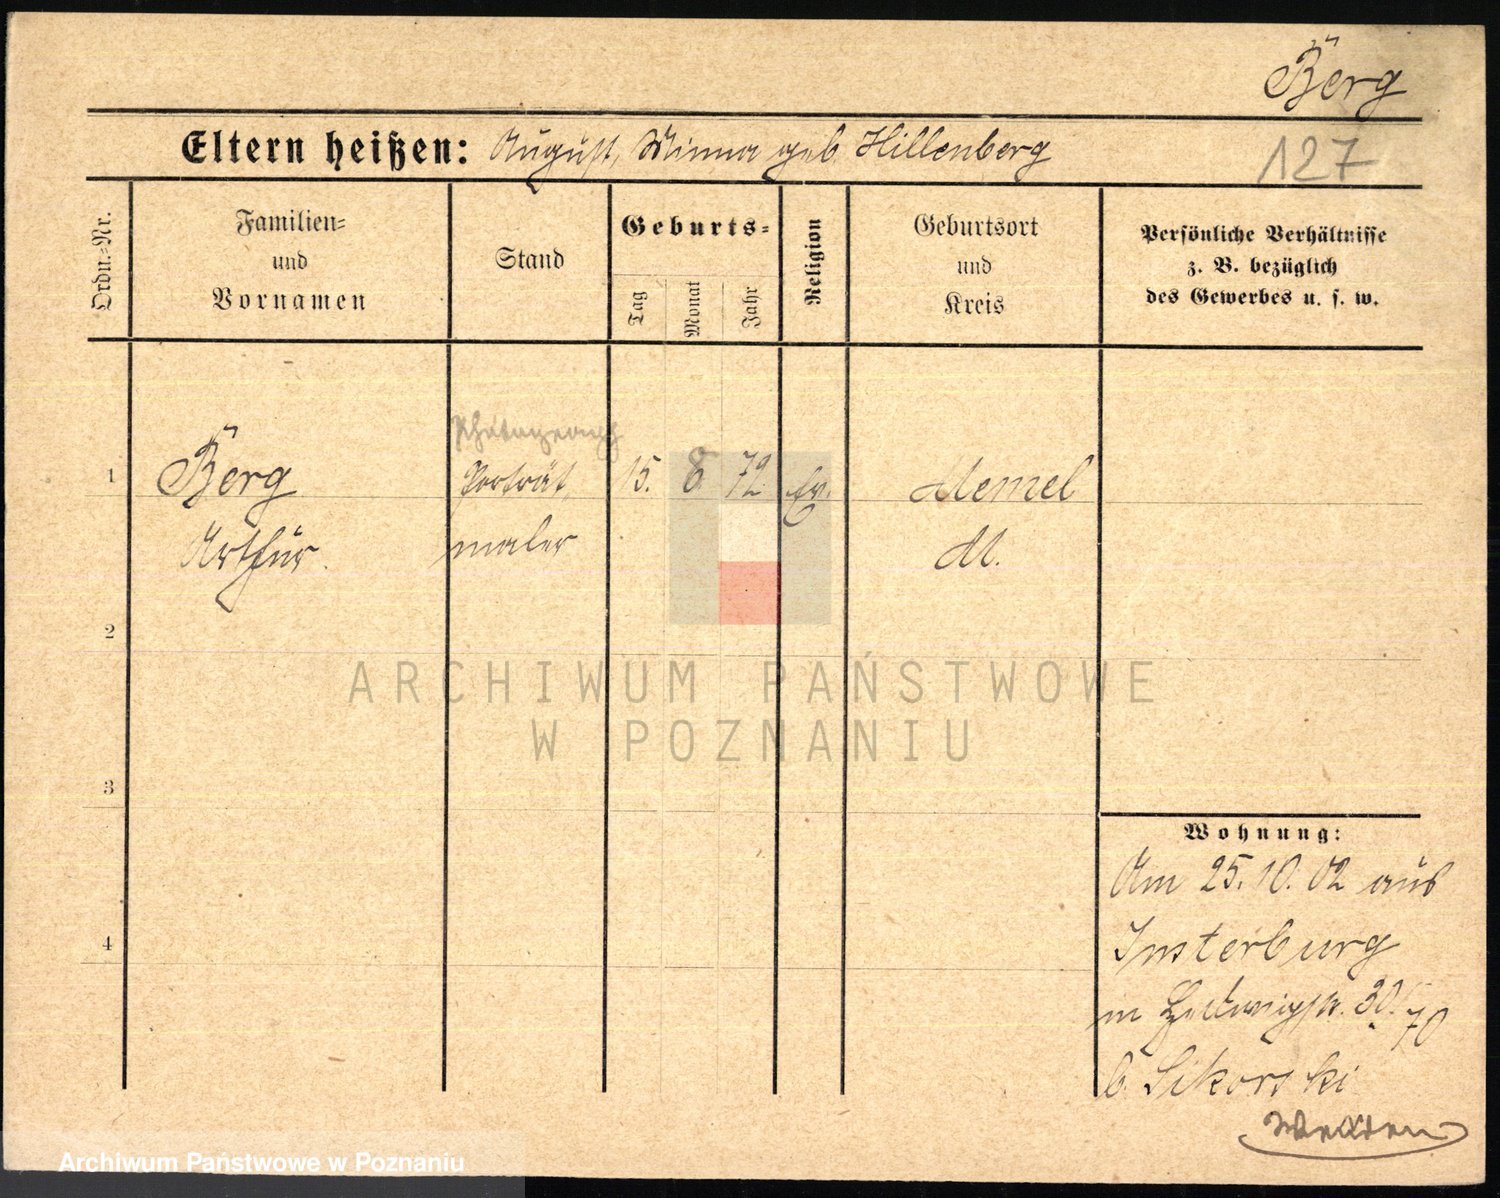 Berg
Eltern heißen: August, Minna geb. Hillenberg
127
Ordn.-Nr.
Familien-
und
Vornamen
Stand
Geburts-
Tag
Monat
Jahr
Religion
Geburtsort
und
Kreis
Persönliche Verhältnisse
z. B. bezüglich
des Gewerbes u. s. w.
1
Berg
Porträt
15. 8. 72
Ev.
Memel
Arthur.
maler
M.
2
ARCHIWUM PAŃSTWOWE
W POZNANIU
3
Wohnung:
Am 25.10.02 aus
4
Insterburg
in Hedwigstr. 30/70
b. Sikorski
Archiwum Państwowe w Poznaniu